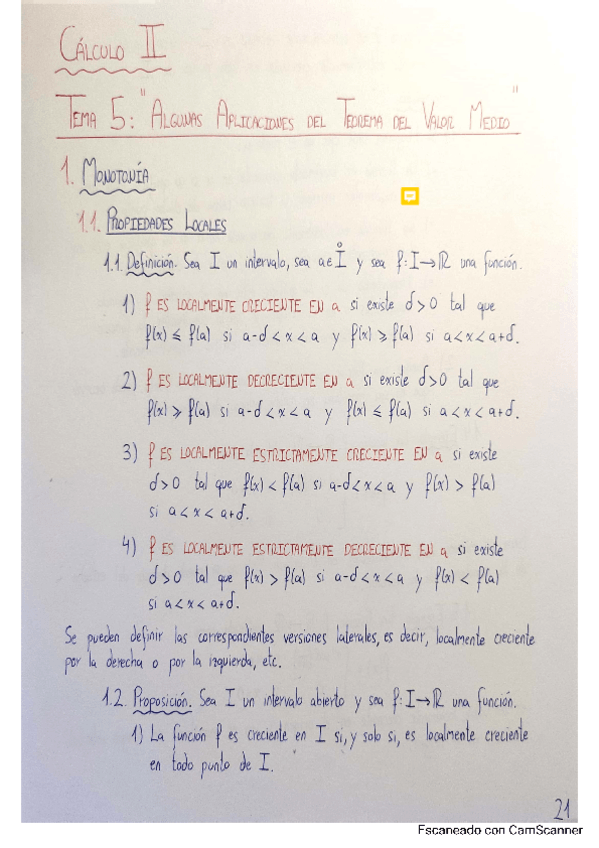 CÁLCULO II
TEMA 5: "ALGUNAS APLICACIONES DEL TEOREMA DEL VALOR MEDIO"
1. MONOTONÍA
1.1. PROPIEDADES LOCALES
1.1. Definición. Sea I un intervalo, sea a∈I̊ y sea f: I→ℝ una función.
1) f ES LOCALMENTE CRECIENTE EN a si existe d>0 tal que
f(x) ≤ f(a) si a-d<x<a y f(x) ≥ f(a) si a<x<a+d.
2) f ES LOCALMENTE DECRECIENTE EN a si existe d>0 tal que
f(x) ≥ f(a) si a-d<x<a y f(x) ≤ f(a) si a<x<a+d.
3) f ES LOCALMENTE ESTRICTAMENTE CRECIENTE EN a si existe
d>0 tal que f(x) < f(a) si a-d<x<a y f(x) > f(a)
si a<x<a+d.
4) f ES LOCALMENTE ESTRICTAMENTE DECRECIENTE EN a si existe
d>0 tal que f(x) > f(a) si a-d<x<a y f(x) < f(a)
si a<x<a+d.
Se pueden definir las correspondientes versiones laterales, es decir, localmente creciente
por la derecha o por la izquierda, etc.
1.2. Proposición. Sea I un intervalo abierto y sea f: I→ℝ una función.
1) La función f es creciente en I si, y solo si, es localmente creciente
en todo punto de I.
21
Escaneado con CamScanner